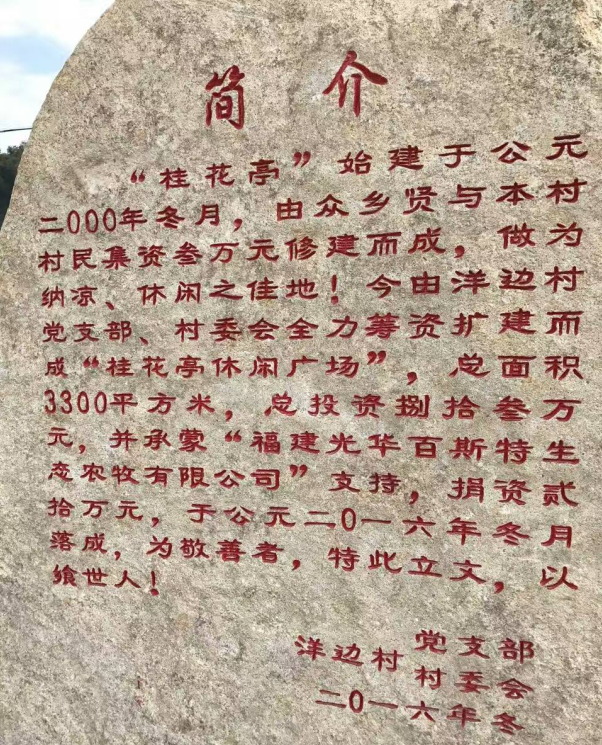 简介
“桂花亭”始建于公元
二000年冬月，由众乡贤与本村
村民集资叁万元修建而成，做为
纳凉、休闲之佳地！今由洋边村
党支部、村委会全力筹资扩建而
成“桂花亭休闲广场”，总面积
3300平方米，总投资捌拾叁万
元，并承蒙“福建光华百斯特生
态农牧有限公司”支持，捐资贰
拾万元，于公元二0一六年冬月
落成，为敬善者，特此立文，以
飨世人！
党支部
洋边村
村委会
二0一六年冬